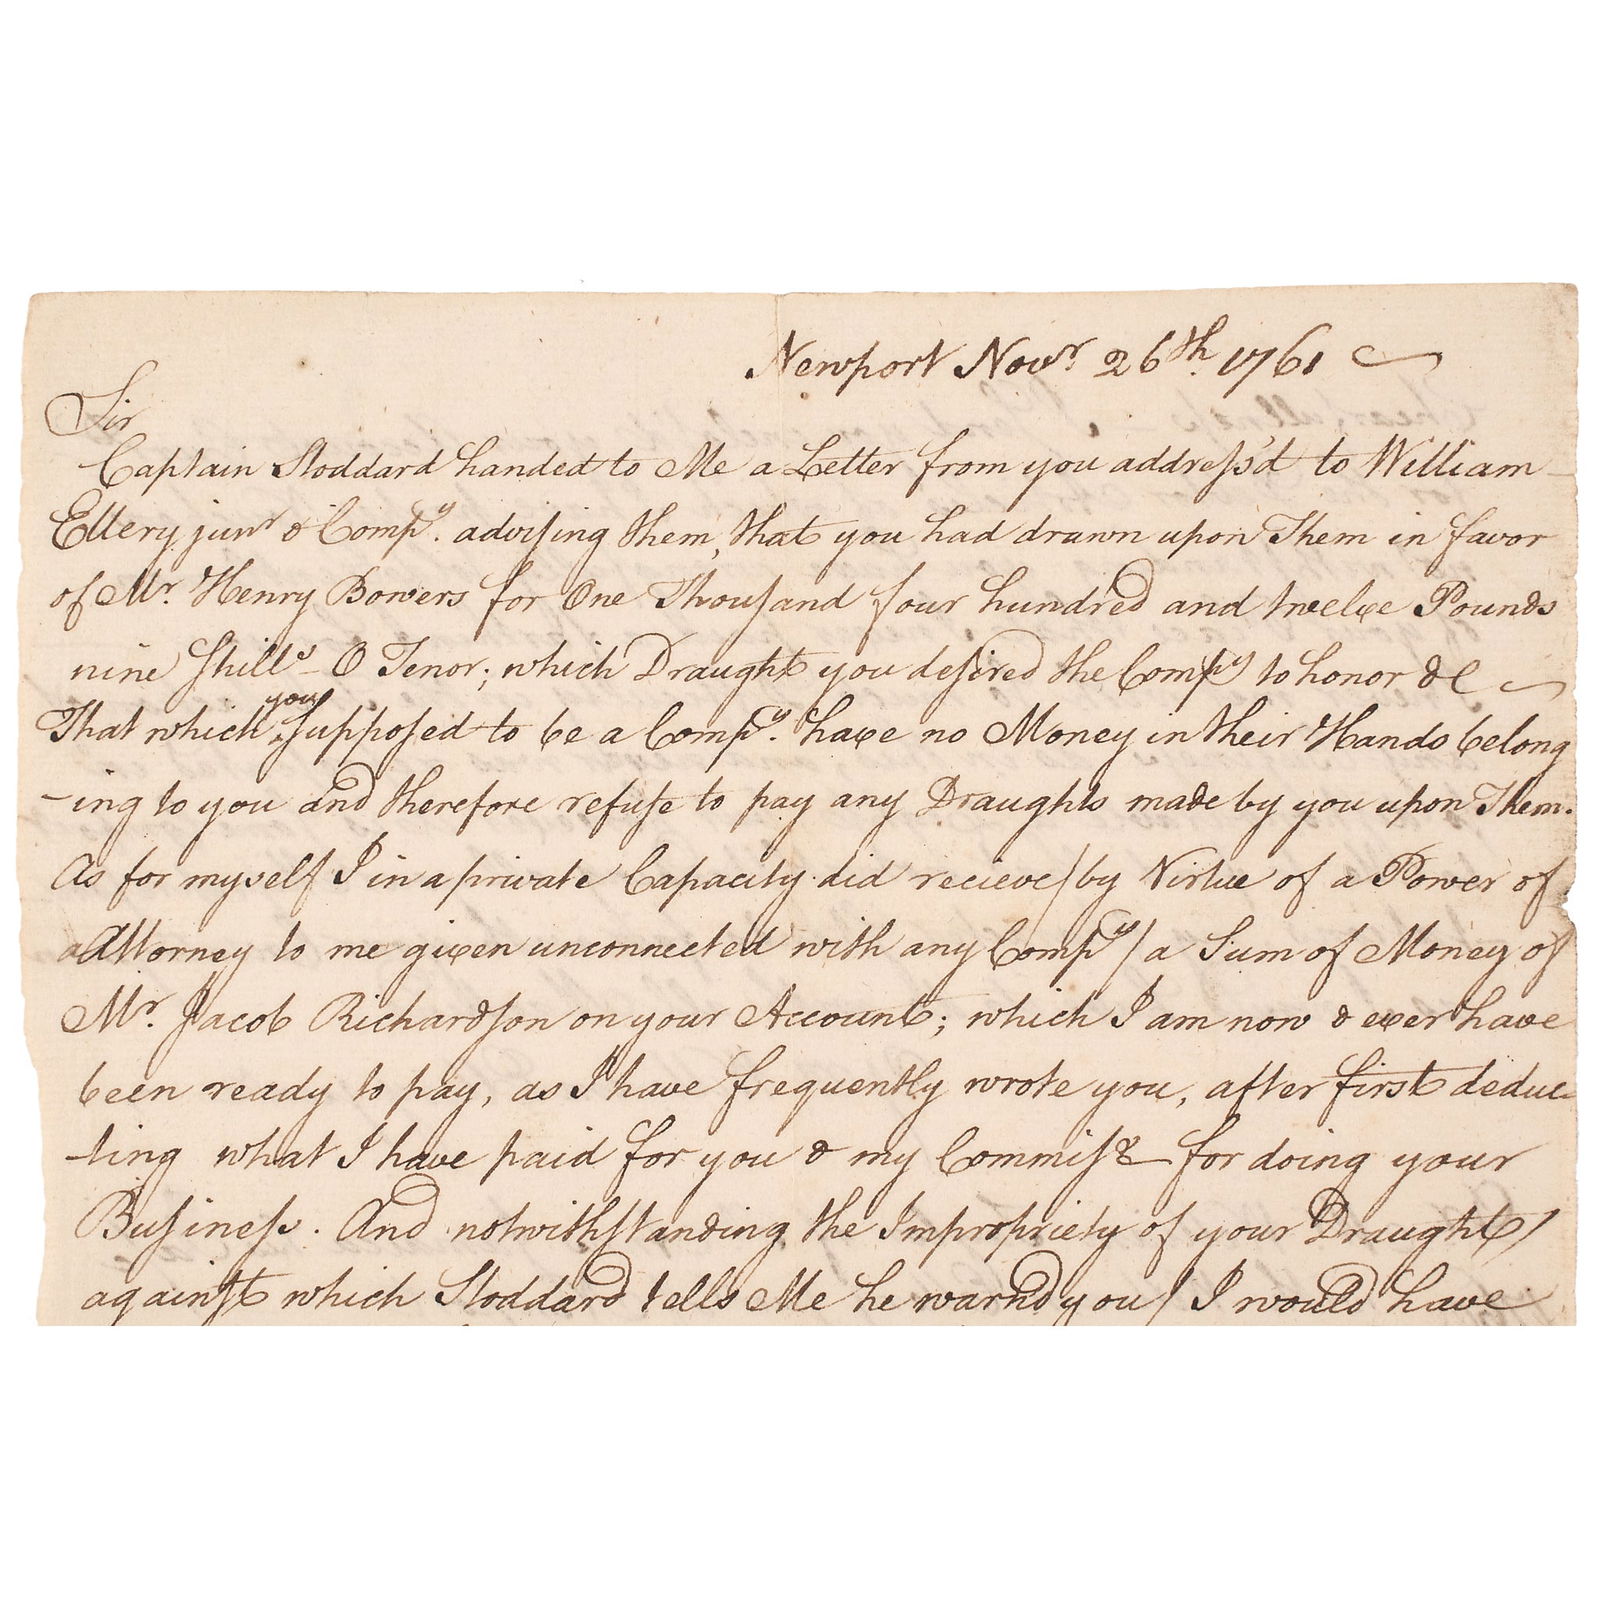 Newport Novr. 26th. 1761
Sir
Captain Stoddard handed to Me a Letter from you addreſs'd to William
Ellery junr & Compy. adviſing them, that you had drawn upon Them in favor
of Mr. Henry Bowers for One Thouſand four hundred and twelve Pounds
nine ſhills - O Tenor; which Draught you deſired the Compy to honor &c
you
That which ‸ſuppoſed to be a Compy. have no Money in their Hands belong
-ing to you and therefore refuſe to pay any Draughts made by you upon Them.
As for myself I in a private Capacity did recieve / by Virtue of a Power of
Attorney to me given unconnected with any Compy / a Sum of Money of
Mr. Jacob Richardſon on your Account; which I am now & ever have
been ready to pay, as I have frequently wrote you, after first deduc-
-ting what I have paid for you & my Commiſs for doing your
Buſineſs. And notwithſtanding the Impropriety of your Draught /
againſt which Stoddard tells Me he warnd you / I would have